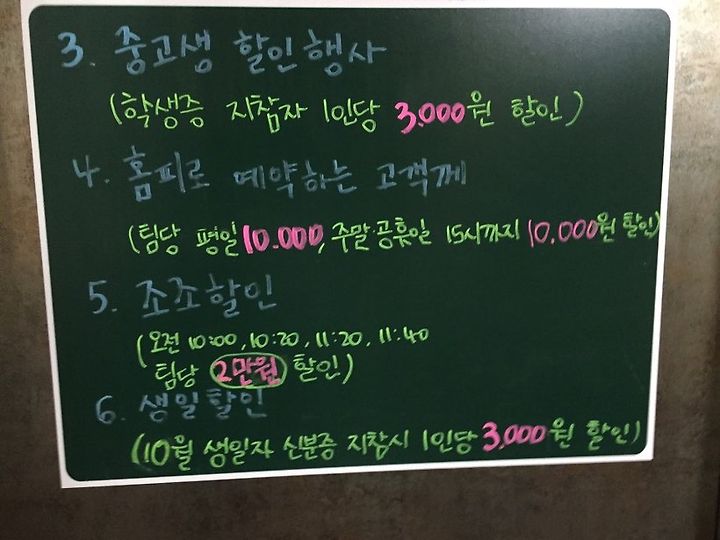 3. 중고생 할인행사
(학생증 지참자 1인당 3.000원 할인)
4. 홈피로 예약하는 고객께
(팀당 평일 10.000, 주말·공휴일 15시까지 10,000원 할인)
5. 조조할인
(오전 10:00, 10:20, 11:20, 11:40
팀당 2만원 할인)
6. 생일할인
(10월 생일자 신분증 지참시 1인당 3,000원 할인)